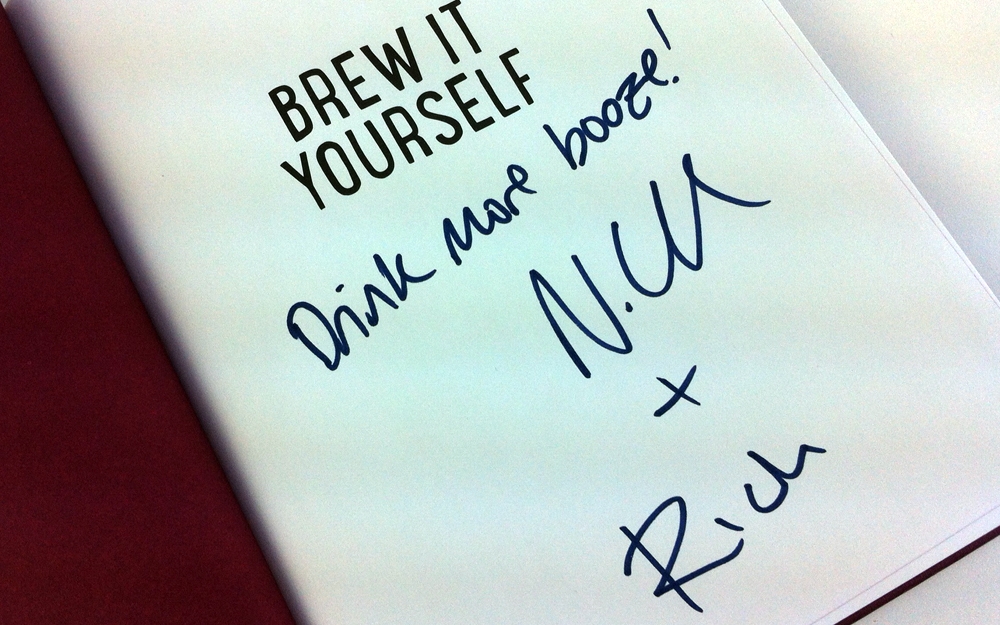 BREW IT
YOURSELF
Drink more booze!
+
Rich